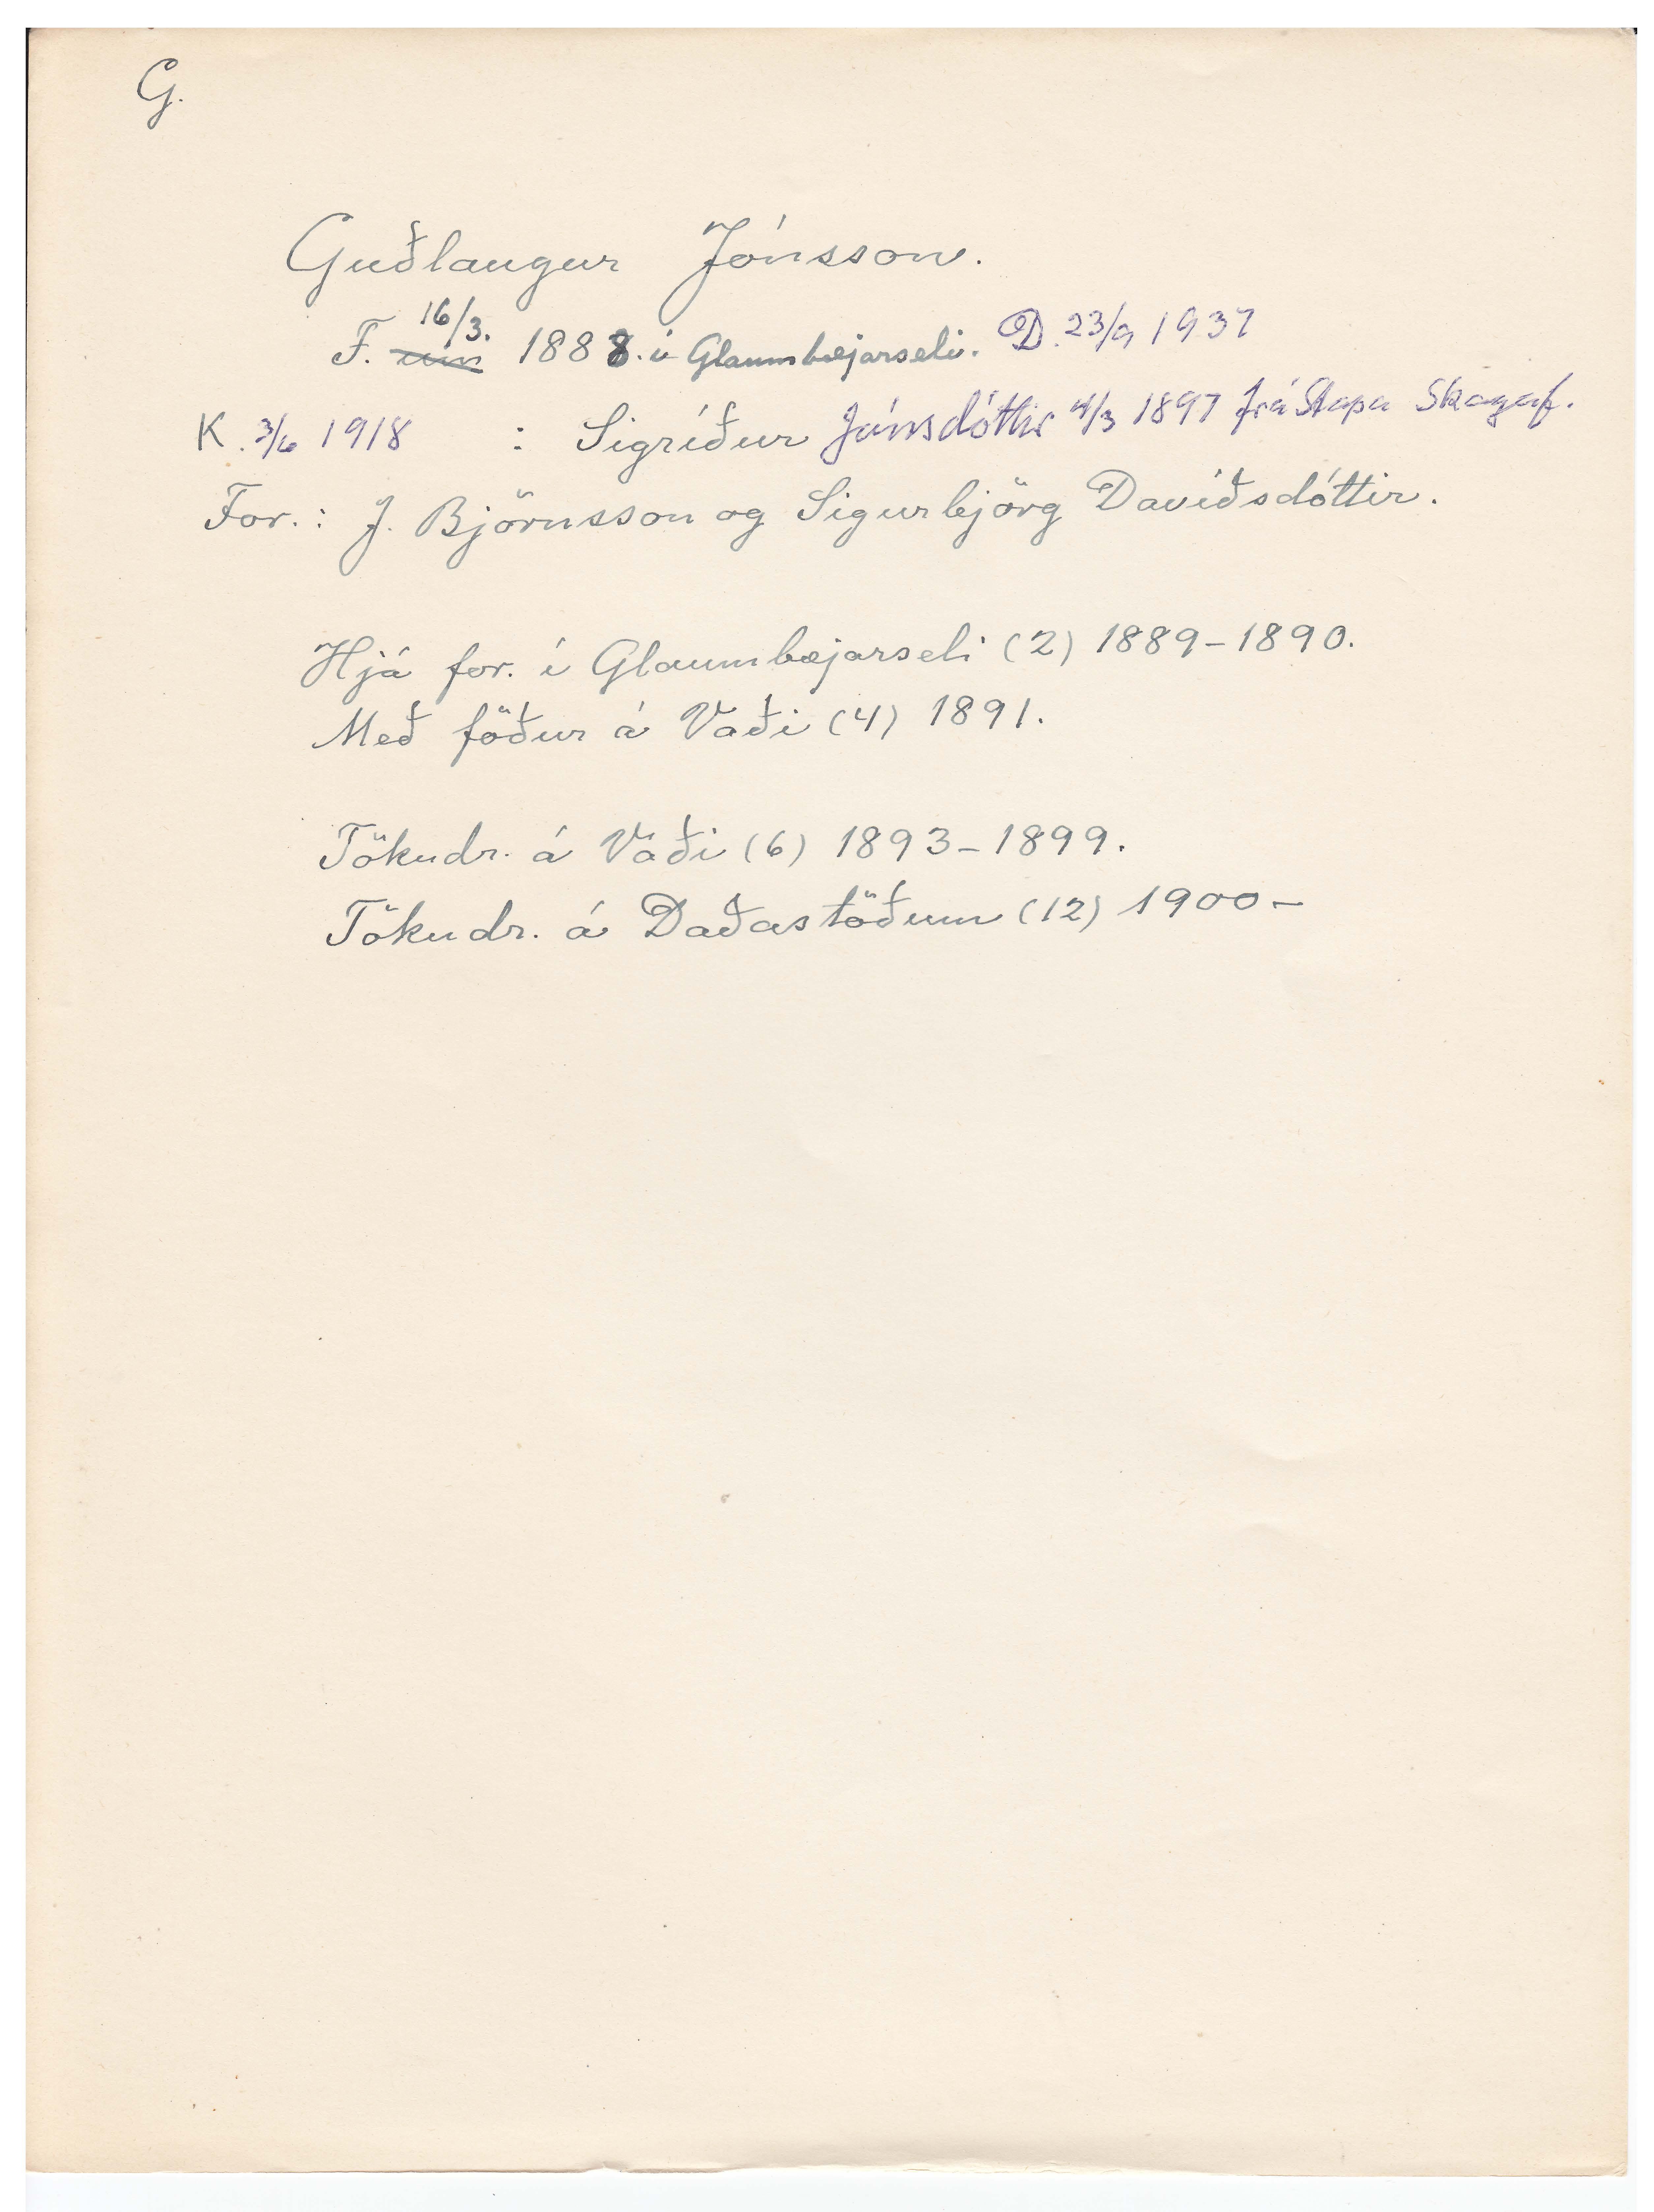 G.
Guðlaugur Jónsson.
F. 16/3. 1888. í Glaumbæjarseli. D. 23/9 1937
K. 3/6 1918 : Sigríður Jónsdóttir 4/3 1897 frá Stapa Skagaf.
For.: J. Björnsson og Sigurbjörg Davíðsdóttir.
Hjá for. í Glaumbæjarseli (2) 1889-1890.
Með föður á Vaði (4) 1891.
Tökudr. á Vaði (6) 1893-1899.
Tökudr. á Daðastöðum (12) 1900-